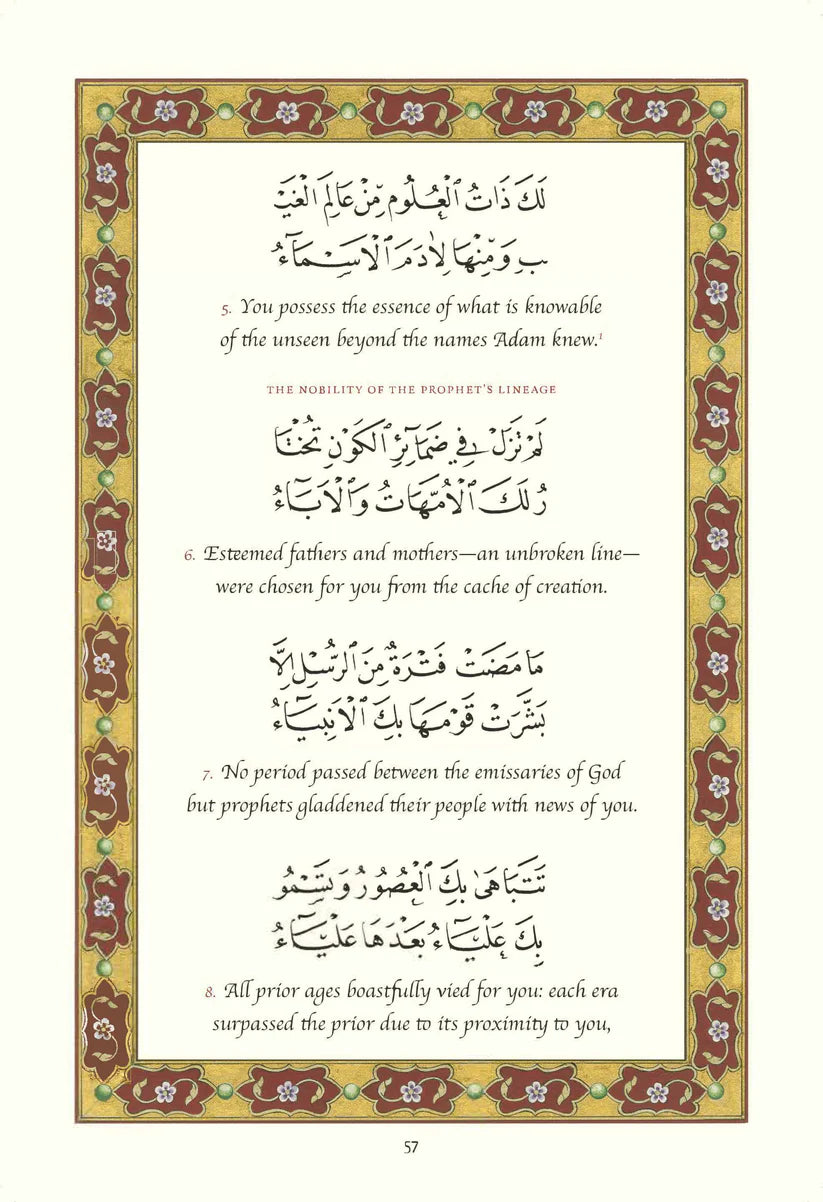 لَكَ ذَاتُ ٱلْعُلُومِ مِّنْ عَالِمِ الْغَيْـ
ـبِ وَمِنْهَا لِأَدَمَ ٱلْأَسْمَآءُ
5. You possess the essence of what is knowable
of the unseen beyond the names Adam knew.¹
THE NOBILITY OF THE PROPHET'S LINEAGE
لَمْ تَزَلْ فِي ضَمَآئِرِ ٱلْكَوْنِ تُخْتَا
رُ لَكَ ٱلْأُمَّهَاتُ وَٱلْأَبَآءُ
6. Esteemed fathers and mothers—an unbroken line—
were chosen for you from the cache of creation.
مَا مَضَتْ فَتْرَةٌ مِنَ ٱلرُّسْلِ إِلَّا
بَشَّرَتْ قَوْمَهَا بِكَ ٱلْأَنْبِيَآءُ
7. No period passed between the emissaries of God
but prophets gladdened their people with news of you.
تَتَبَاهَىٰ بِكَ ٱلْعُصُورُ وَتَسْمُو
بِكَ عَلْيَآءُ بَعْدَهَا عَلْيَآءُ
8. All prior ages boastfully vied for you: each era
surpassed the prior due to its proximity to you,
57